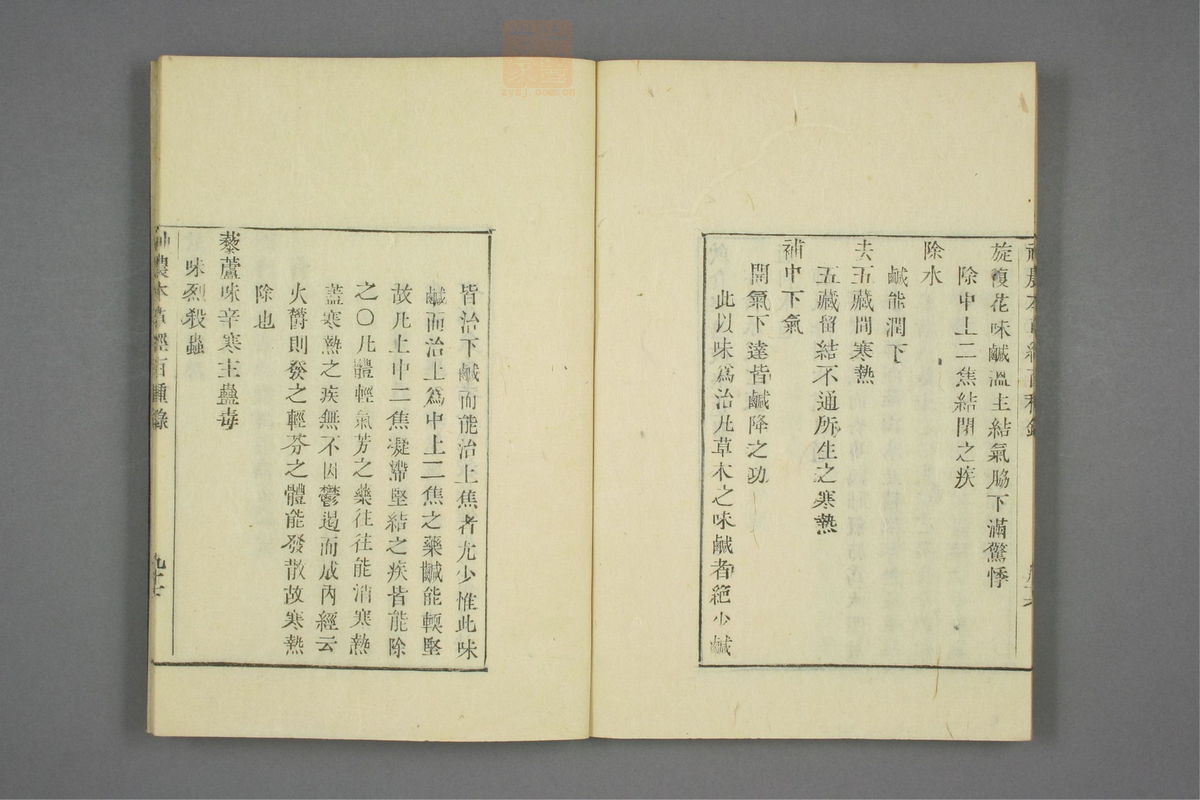 旋復花味鹹溫主結氣脇下滿驚悸
除中上二焦結閉之疾
除水
鹹能潤下
去五藏間寒熱
五藏留結不通所生之寒熱
補中下氣
開氣下達皆鹹降之功
此以味爲治凡草木之味鹹者絕少鹹
皆治下鹹而能治上焦者尤少惟此味
鹹而治上爲中上二焦之藥鹹能輭堅
故凡上中二焦凝滯堅結之疾皆能除
之〇凡體輕氣芳之藥往往能消寒熱
蓋寒熱之疾無不因鬱遏而成內經云
火鬱則發之輕芬之體能發散故寒熱
除也
藜蘆味辛寒主蠱毒
味烈殺蟲
神農本草經百種錄
九十七
zysj.com.cn